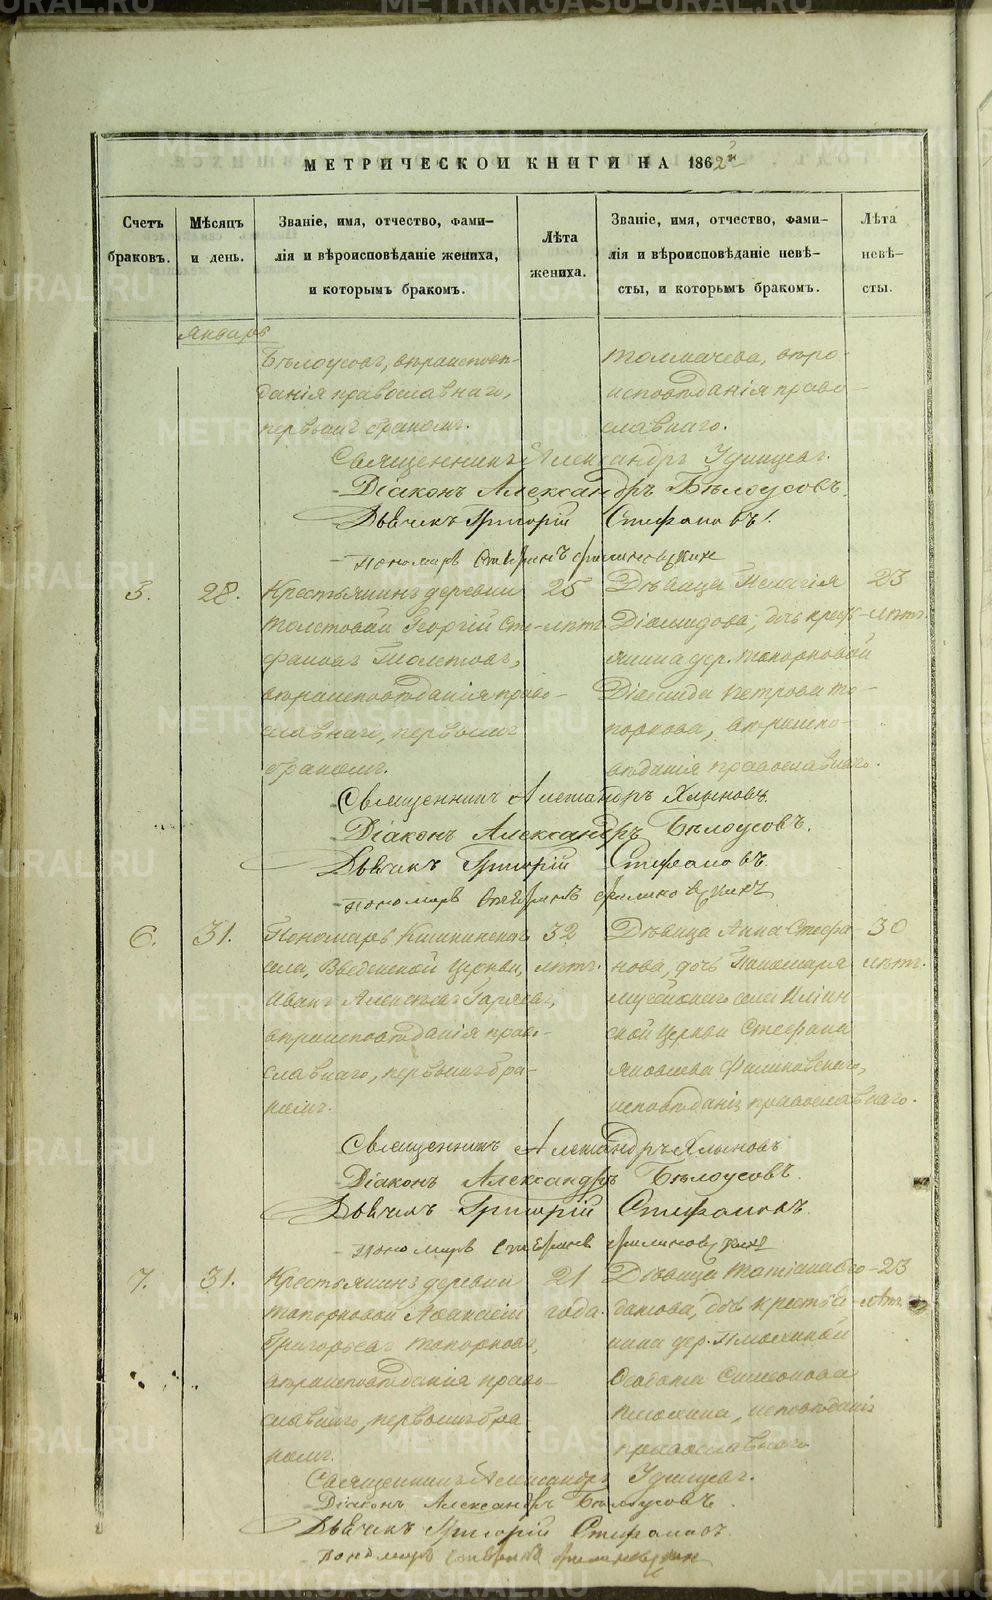 МЕТРИЧЕСКОЙ КНИГИ НА 1862й
Счетъ браковъ.
Мѣсяцъ и день.
Званіе, имя, отчество, фами-
лія и вѣроисповѣданіе жениха,
и которымъ бракомъ.
Лѣта жениха.
Званіе, имя, отчество, фами-
лія и вѣроисповѣданіе невѣ-
сты, и которымъ бракомъ.
Лѣта
невѣ-
сты.
Январь
Бѣлоусовъ, вѣроисповѣ-
данія православнаго,
первымъ бракомъ.
Толмачева, вѣро-
исповѣданія право-
славнаго.
Священникъ Александръ Удинцевъ.
Діаконъ Александръ Бѣлоусовъ.
Дьячекъ Григорій Стефановъ.
Пономарь
5.
28.
Крестьянинъ деревни
Толстовой Георгій Сте-
фановъ Толстовъ,
вѣроисповѣданія право-
славнаго, первымъ
бракомъ.
25
лѣтъ.
Дѣвица Пелагія
Діомидова, дочь крест-
янина дер. Топорковой
Діомида Петрова То-
поркова, вѣроиспо-
вѣданія православнаго.
23
лѣтъ.
Священникъ Александръ Хлыновъ.
Діаконъ Александръ Бѣлоусовъ.
Дьячекъ Григорій Стефановъ.
Пономарь
6.
31.
Пономарь
села, Введенской Церкви,
Иванъ Алексѣевъ
вѣроисповѣданія право-
славнаго, первымъ бра-
комъ.
32
лѣтъ.
Дѣвица Анна Стефа-
нова, дочь Пономаря
села Ильин-
ской Церкви Стефана
Яковлева Филиновскаго,
исповѣданія православнаго.
30
лѣтъ.
Священникъ Александръ Хлыновъ
Діаконъ Александръ Бѣлоусовъ.
Дьячекъ Григорій Стефановъ.
Пономарь
7.
31.
Крестьянинъ деревни
Топорковой Афанасій
Григорьевъ Топорковъ,
вѣроисповѣданія право-
славнаго, первымъ бра-
комъ.
21
года.
Дѣвица Татіана Ѳео-
дотова, дочь крестья-
нина дер.
Ѳеодота Симеонова
исповѣданія
православнаго
23
лѣтъ
Священникъ Александръ Удинцевъ.
Діаконъ Александръ Бѣлоусовъ.
Дьячекъ Григорій Стефановъ.
Пономарь
METRIKI.GASO-URAL.RU